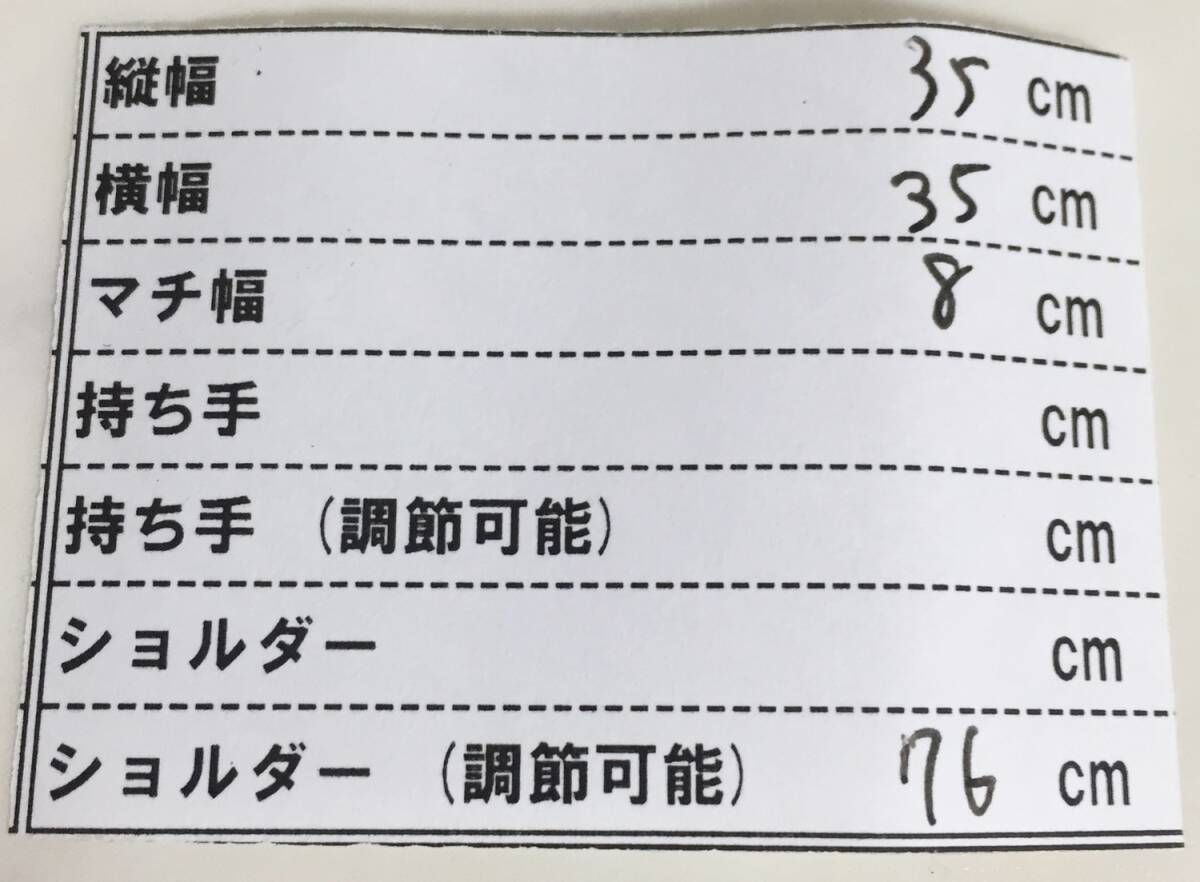 縦幅 35 cm
横幅 35 cm
マチ幅 8 cm
持ち手 cm
持ち手 (調節可能) cm
ショルダー cm
ショルダー (調節可能) 76 cm